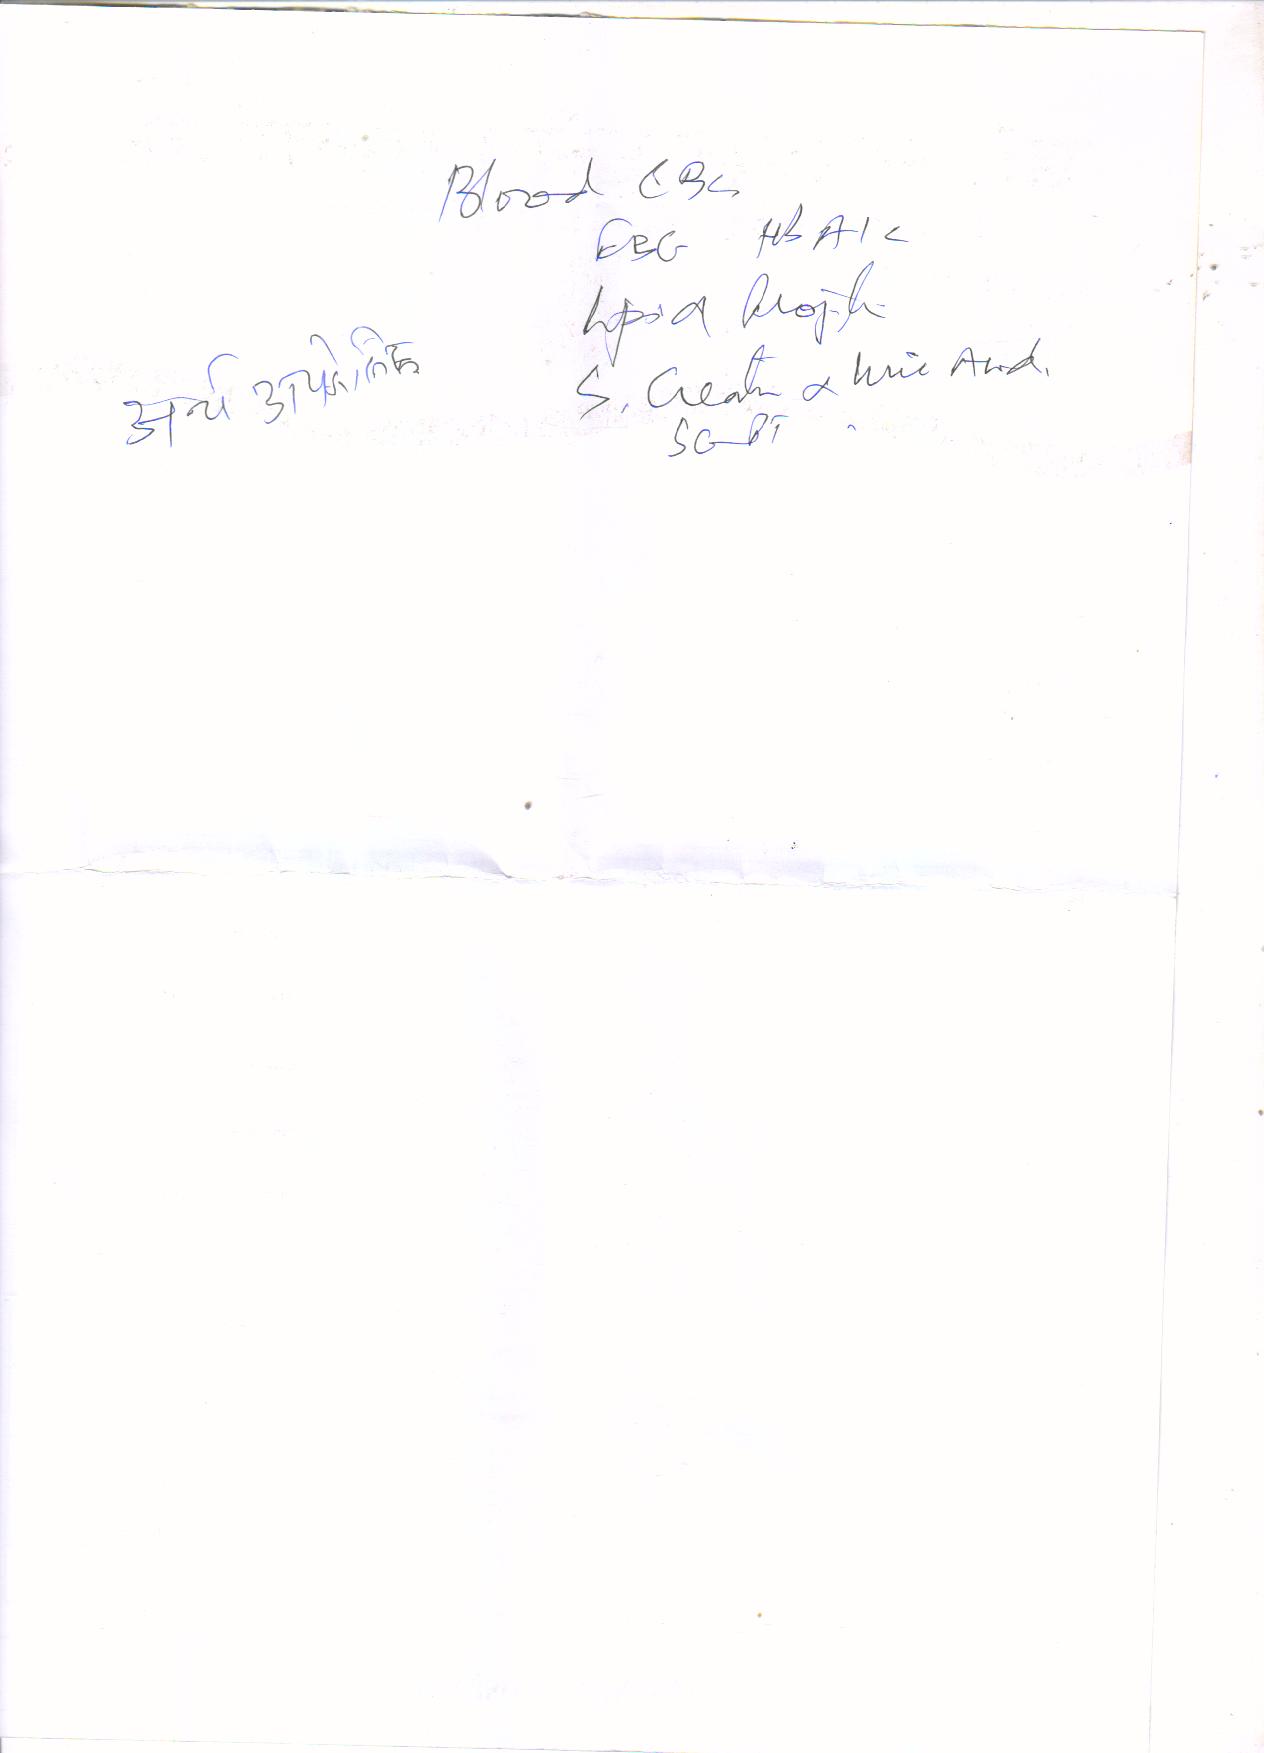 Blood CBC
FBG HbA1c
Lipid Profile
S. Creatn & Uric Acid.
SGPT